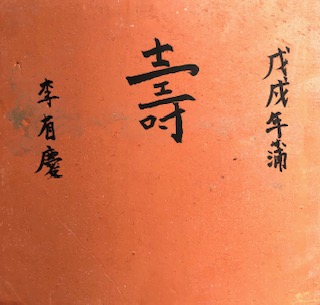 戊戌年蒲
壽
李有慶